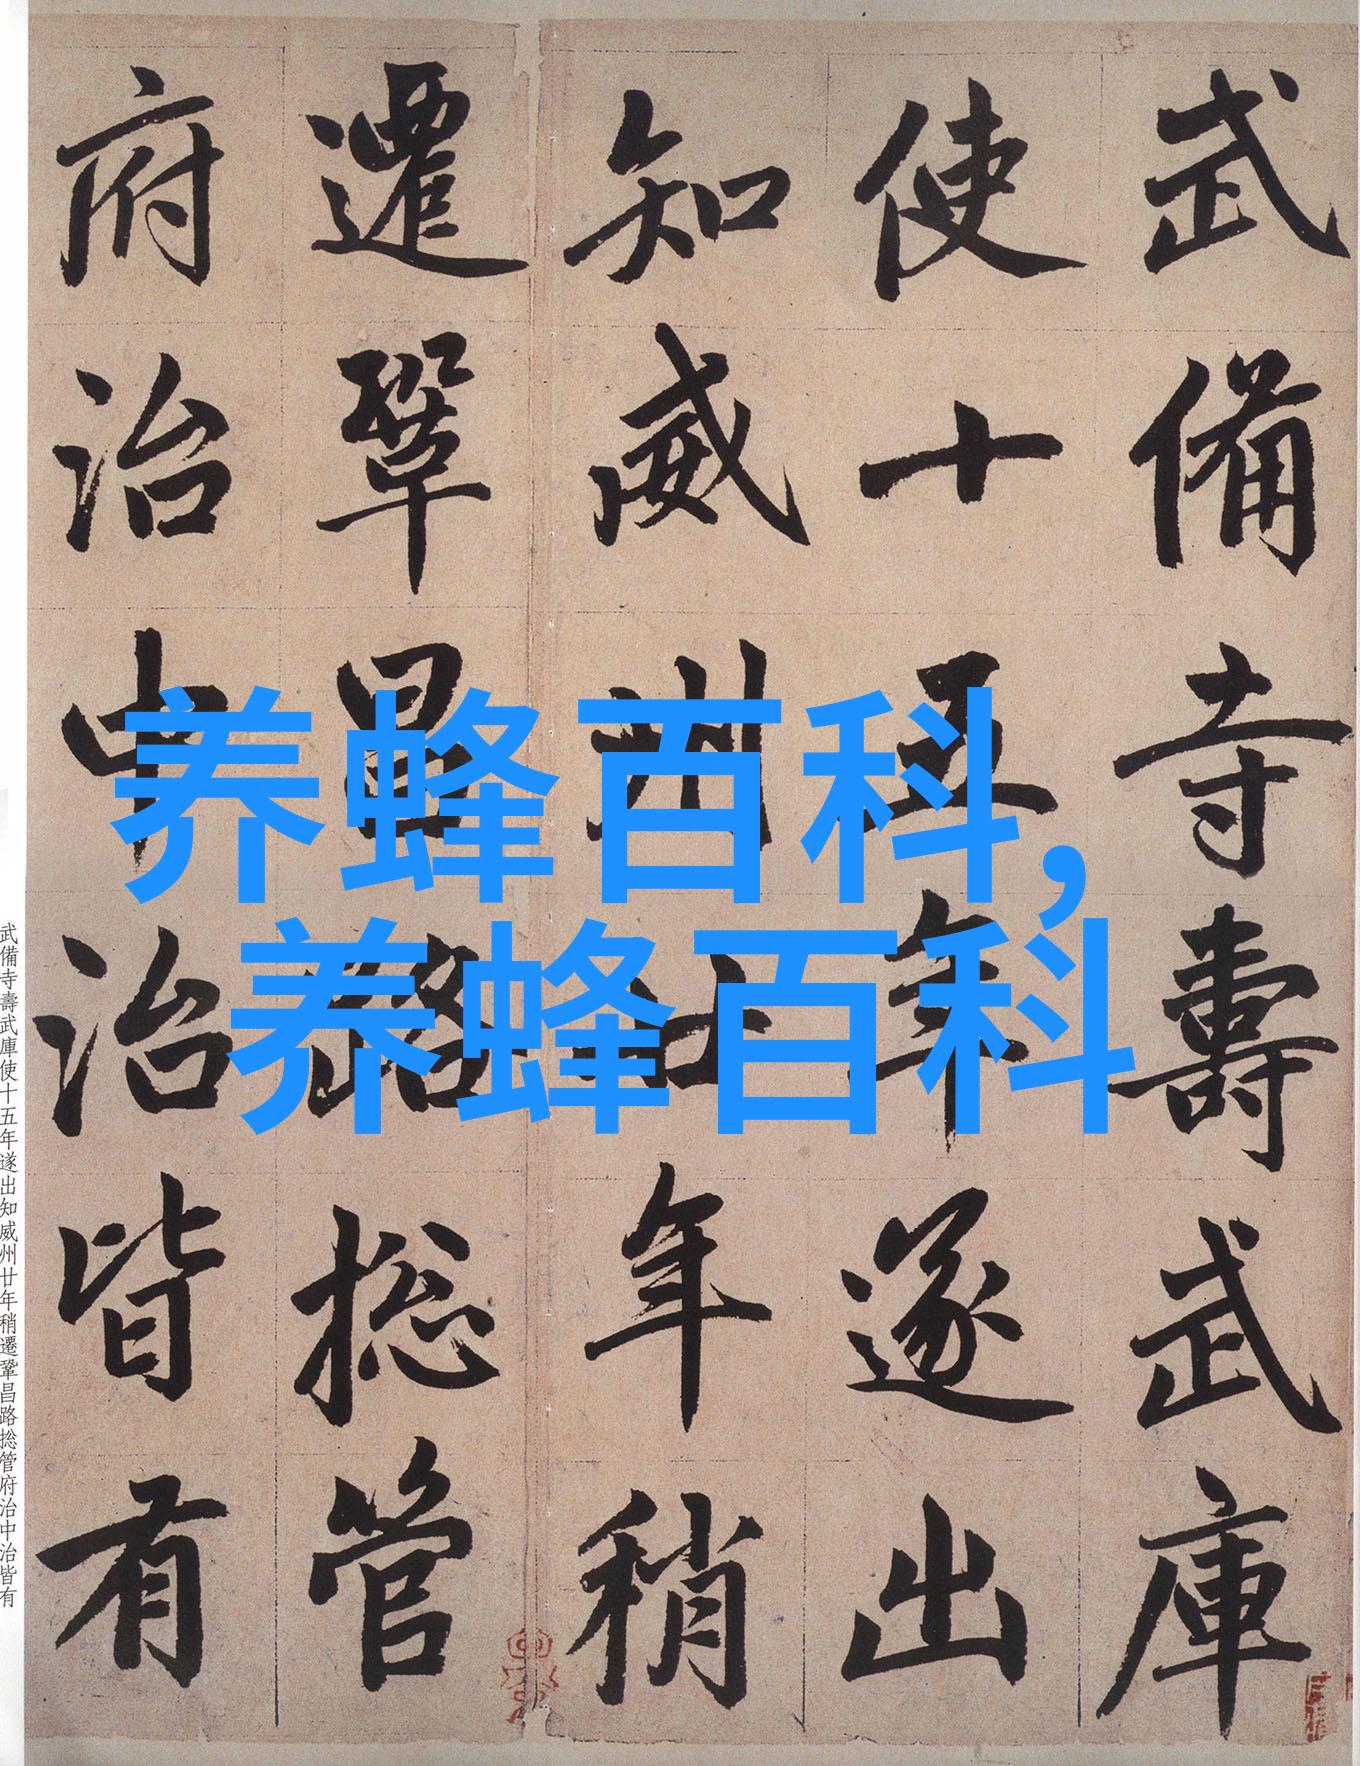 武備寺壽武庫
使十五年遂出
知威州廿年稍
遷鞏昌路捴管
府治中治皆有
养蜂百科,
养蜂百科
武備寺壽武庫使十五年遂出知威州廿年稍遷鞏昌路捴管府治中治皆有